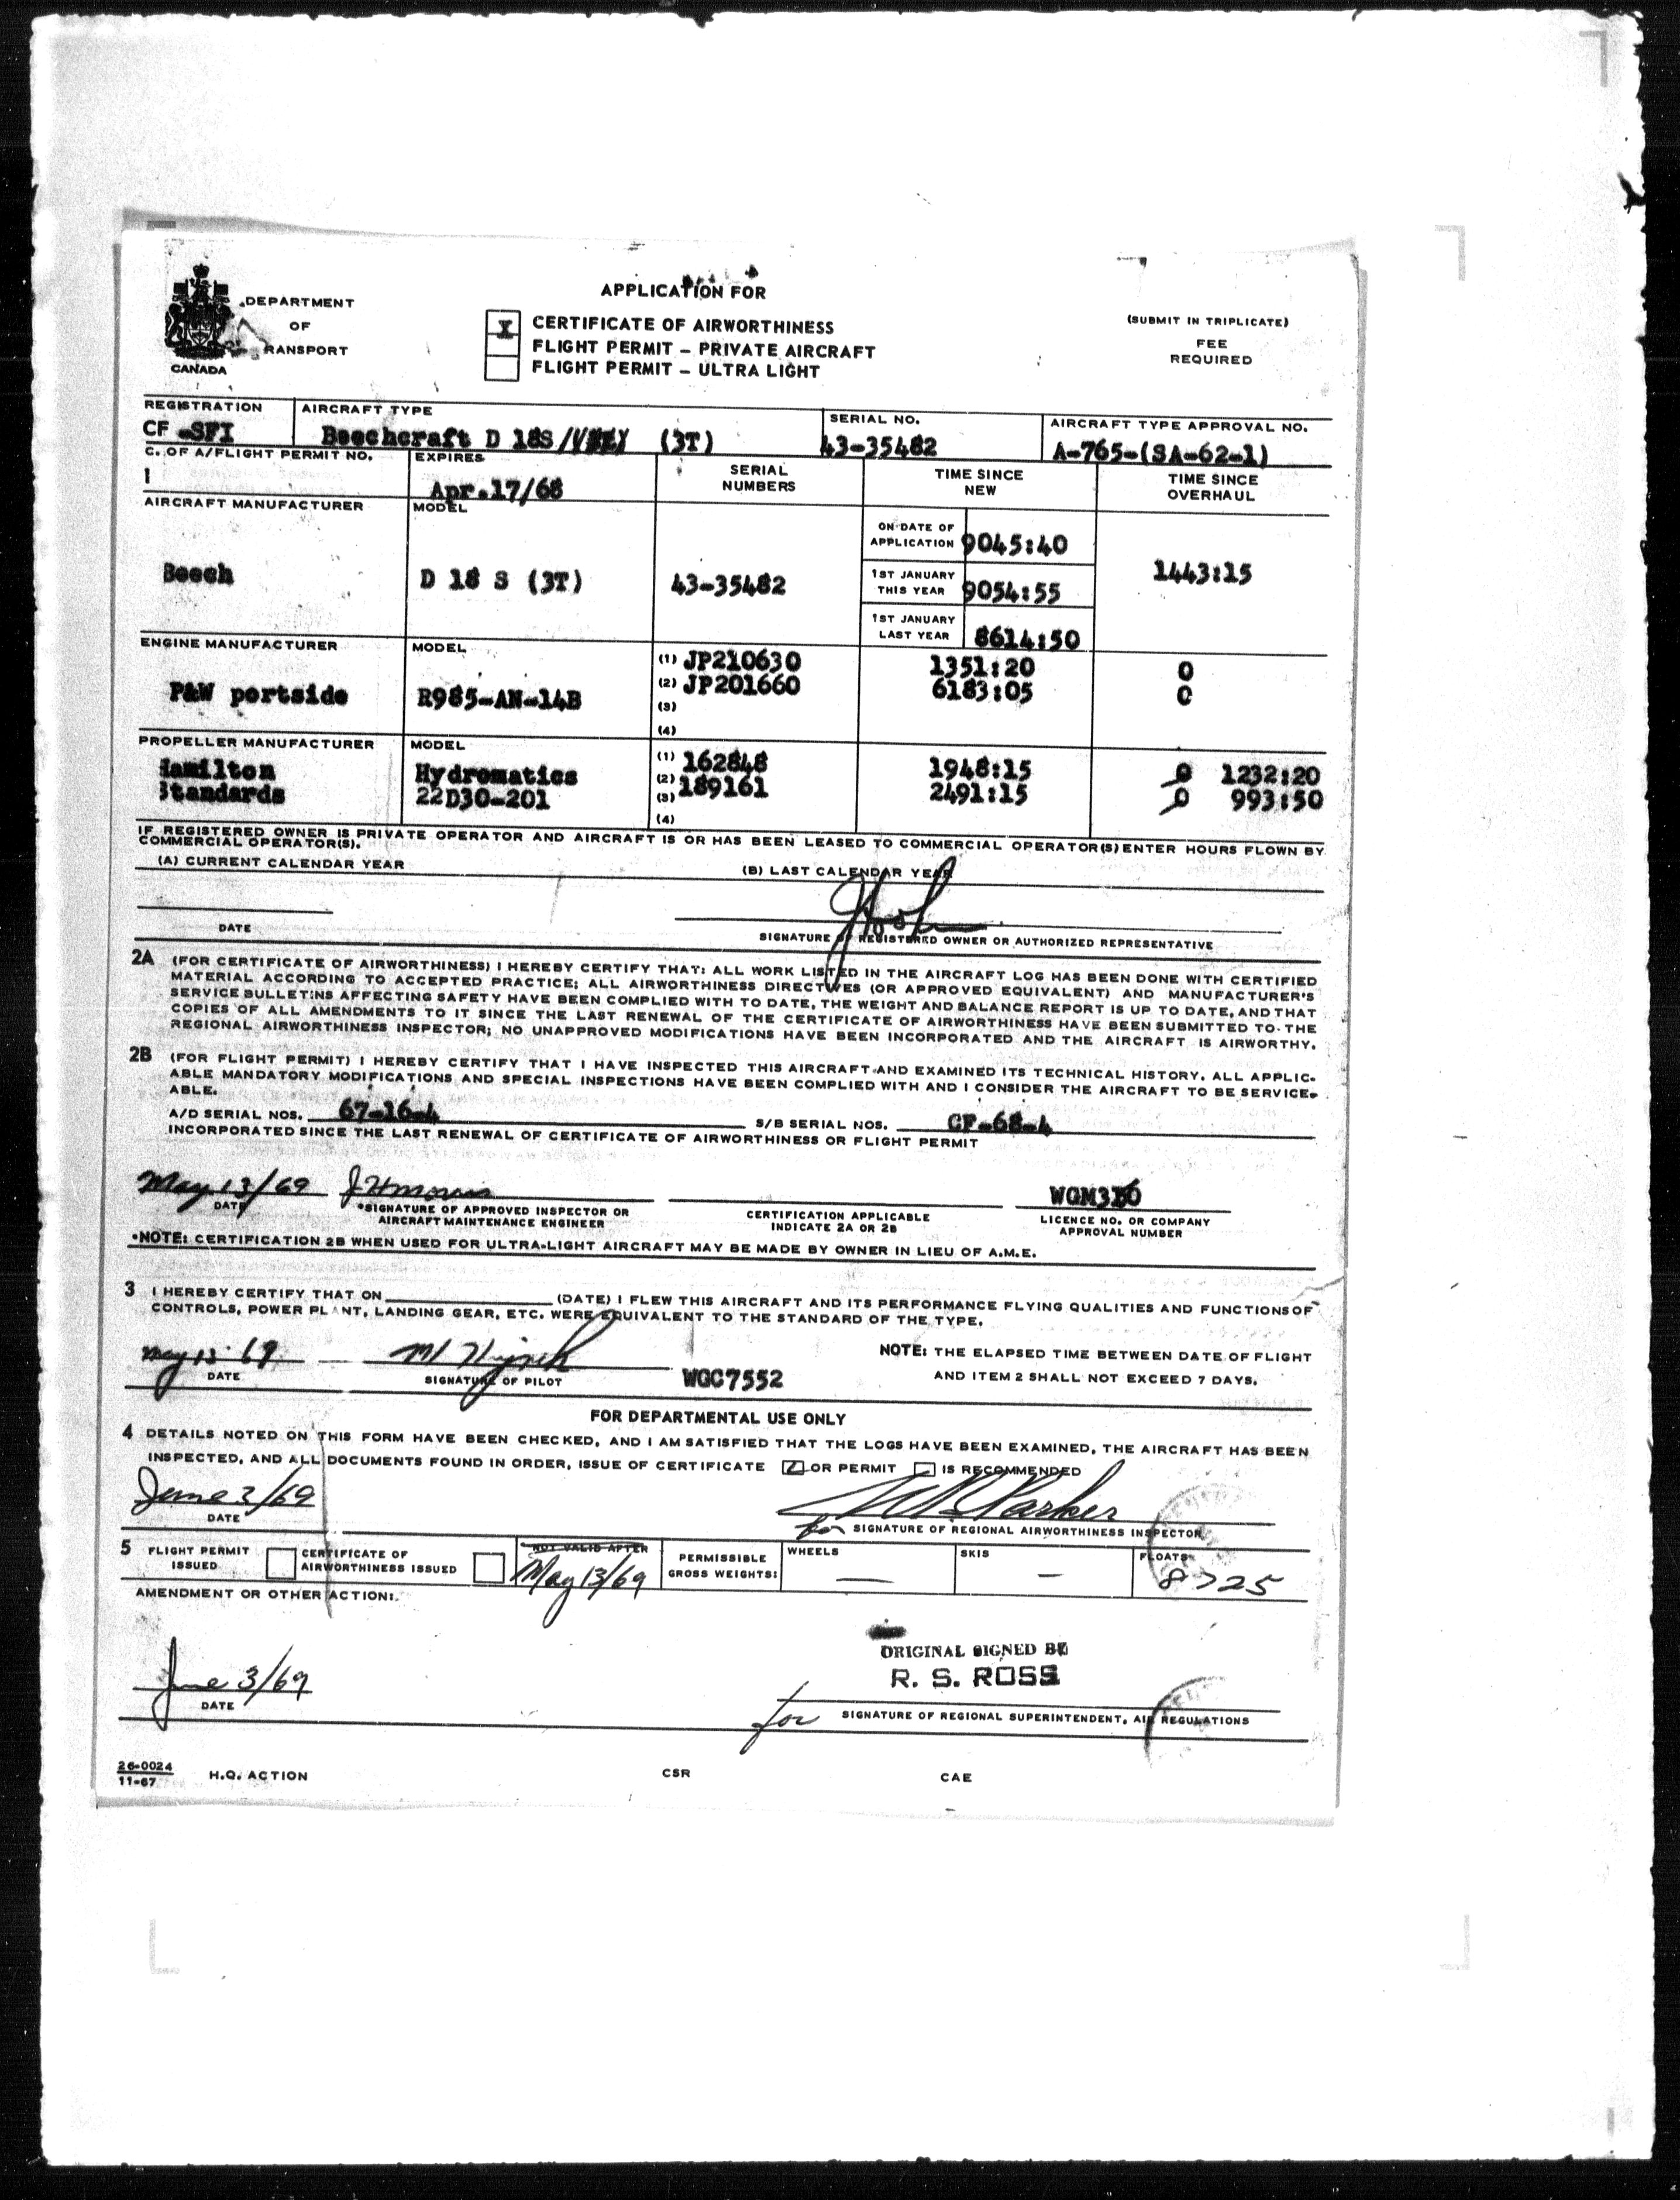 DEPARTMENT
OF
RANSPORT
CANADA
APPLICATION FOR
X CERTIFICATE OF AIRWORTHINESS
FLIGHT PERMIT – PRIVATE AIRCRAFT
FLIGHT PERMIT – ULTRA LIGHT
(SUBMIT IN TRIPLICATE)
FEE
REQUIRED
REGISTRATION
CF -SFI
AIRCRAFT TYPE
Beechcraft D 18S (3T)
SERIAL NO.
43-35482
AIRCRAFT TYPE APPROVAL NO.
A-765-(SA-62-1)
C. OF A/FLIGHT PERMIT NO.
1
EXPIRES
Apr.17/68
SERIAL
NUMBERS
TIME SINCE
NEW
TIME SINCE
OVERHAUL
AIRCRAFT MANUFACTURER
Beech
MODEL
D 18 S (3T)
43-35482
ON DATE OF
APPLICATION 9045:40
1ST JANUARY
THIS YEAR 9054:55
1ST JANUARY
LAST YEAR 8614:50
1443:15
ENGINE MANUFACTURER
P&W portside
MODEL
R985-AN-14B
(1) JP210630 1351:20 0
(2) JP201660 6183:05 0
(3)
(4)
PROPELLER MANUFACTURER
Hamilton
Standards
MODEL
Hydromatics
22D30-201
(1) 162848 1948:15 0 1232:20
(2) 189161 2491:15 0 993:50
(3)
(4)
IF REGISTERED OWNER IS PRIVATE OPERATOR AND AIRCRAFT IS OR HAS BEEN LEASED TO COMMERCIAL OPERATOR(S) ENTER HOURS FLOWN BY
COMMERCIAL OPERATOR(S).
(A) CURRENT CALENDAR YEAR
(B) LAST CALENDAR YEAR
DATE
SIGNATURE OF REGISTERED OWNER OR AUTHORIZED REPRESENTATIVE
2A (FOR CERTIFICATE OF AIRWORTHINESS) I HEREBY CERTIFY THAT: ALL WORK LISTED IN THE AIRCRAFT LOG HAS BEEN DONE WITH CERTIFIED
MATERIAL ACCORDING TO ACCEPTED PRACTICE; ALL AIRWORTHINESS DIRECTIVES (OR APPROVED EQUIVALENT) AND MANUFACTURER'S
SERVICE BULLETINS AFFECTING SAFETY HAVE BEEN COMPLIED WITH TO DATE, THE WEIGHT AND BALANCE REPORT IS UP TO DATE, AND THAT
COPIES OF ALL AMENDMENTS TO IT SINCE THE LAST RENEWAL OF THE CERTIFICATE OF AIRWORTHINESS HAVE BEEN SUBMITTED TO THE
REGIONAL AIRWORTHINESS INSPECTOR; NO UNAPPROVED MODIFICATIONS HAVE BEEN INCORPORATED AND THE AIRCRAFT IS AIRWORTHY.
2B (FOR FLIGHT PERMIT) I HEREBY CERTIFY THAT I HAVE INSPECTED THIS AIRCRAFT AND EXAMINED ITS TECHNICAL HISTORY. ALL APPLIC-
ABLE MANDATORY MODIFICATIONS AND SPECIAL INSPECTIONS HAVE BEEN COMPLIED WITH AND I CONSIDER THE AIRCRAFT TO BE SERVICE-
ABLE.
A/D SERIAL NOS. 67-16-4 S/B SERIAL NOS. CF-68-4
INCORPORATED SINCE THE LAST RENEWAL OF CERTIFICATE OF AIRWORTHINESS OR FLIGHT PERMIT
May 13/69
DATE
*SIGNATURE OF APPROVED INSPECTOR OR
AIRCRAFT MAINTENANCE ENGINEER
CERTIFICATION APPLICABLE
INDICATE 2A OR 2B
LICENCE NO. OR COMPANY
APPROVAL NUMBER
*NOTE: CERTIFICATION 2B WHEN USED FOR ULTRA-LIGHT AIRCRAFT MAY BE MADE BY OWNER IN LIEU OF A.M.E.
3 I HEREBY CERTIFY THAT ON (DATE) I FLEW THIS AIRCRAFT AND ITS PERFORMANCE FLYING QUALITIES AND FUNCTIONS OF
CONTROLS, POWER PLANT, LANDING GEAR, ETC. WERE EQUIVALENT TO THE STANDARD OF THE TYPE.
May 13 69
DATE
SIGNATURE OF PILOT
WGC7552
NOTE: THE ELAPSED TIME BETWEEN DATE OF FLIGHT
AND ITEM 2 SHALL NOT EXCEED 7 DAYS.
FOR DEPARTMENTAL USE ONLY
4 DETAILS NOTED ON THIS FORM HAVE BEEN CHECKED, AND I AM SATISFIED THAT THE LOGS HAVE BEEN EXAMINED, THE AIRCRAFT HAS BEEN
INSPECTED, AND ALL DOCUMENTS FOUND IN ORDER, ISSUE OF CERTIFICATE OR PERMIT IS RECOMMENDED
June 2/69
DATE
for SIGNATURE OF REGIONAL AIRWORTHINESS INSPECTOR
5 FLIGHT PERMIT
ISSUED
CERTIFICATE OF
AIRWORTHINESS ISSUED
NOT VALID AFTER
May 13/69
PERMISSIBLE
GROSS WEIGHTS:
WHEELS
—
SKIS
—
FLOATS
8725
AMENDMENT OR OTHER ACTION:
June 3/69
DATE
ORIGINAL SIGNED BY
R. S. ROSS
for SIGNATURE OF REGIONAL SUPERINTENDENT, AIR REGULATIONS
26-0024
11-67
H.Q. ACTION
CSR
CAE